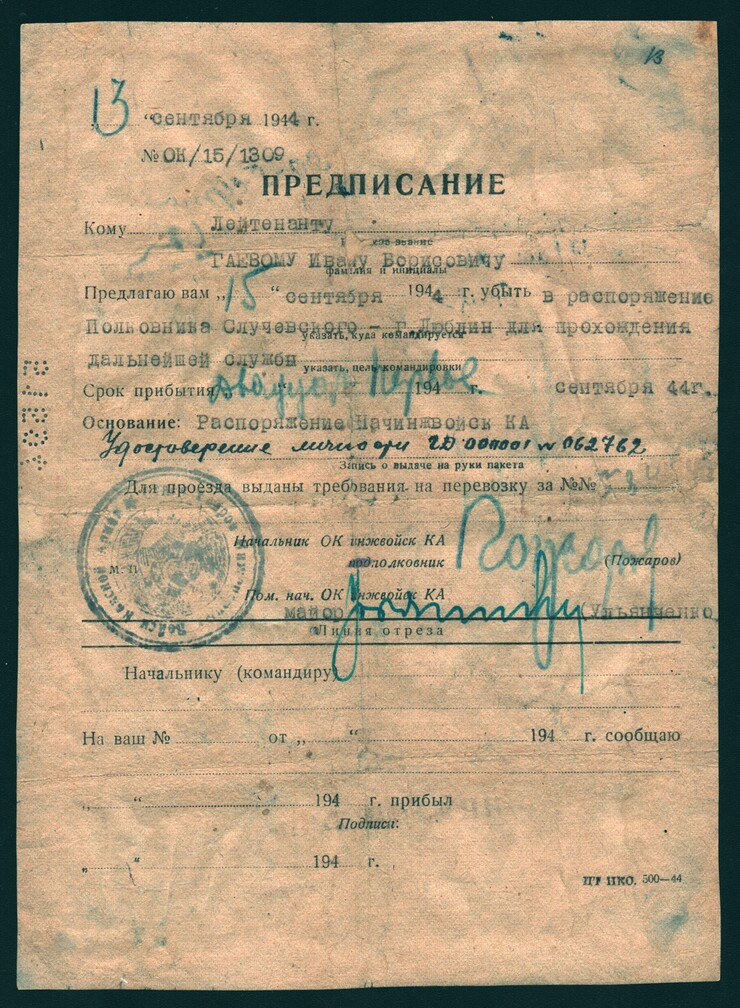 13
13 "сентября 1944 г.
№ОК/15/1309
ПРЕДПИСАНИЕ
Кому Лейтенанту
звание
ГАЕВОМУ Ивану Борисовичу
фамилия и инициалы
Предлагаю вам „15 “ сентября 1944 г. убыть в распоряжение
Полковника Случевского - г.Люблин для прохождения
указать, куда командируется
дальнейшей службы
указать, цель командировки
Срок прибытия двадцать первое 194 г. сентября 44г.
Основание: Распоряжение Начинжвойск КА
Удостоверение личности № 062762
Запись о выдаче на руки пакета
Для проезда выданы требования на перевозку за №№
Начальник ОК инжвойск КА
подполковник (Пожаров)
М. П.
Пом. нач. ОК инжвойск КА
майор Ульянченко
Линия отреза
Начальнику (командиру)
На ваш № от „ “ 194 г. сообщаю
„ “ 194 г. прибыл
Подписи:
„ “ 194 г.
ПТ НКО. 500—44